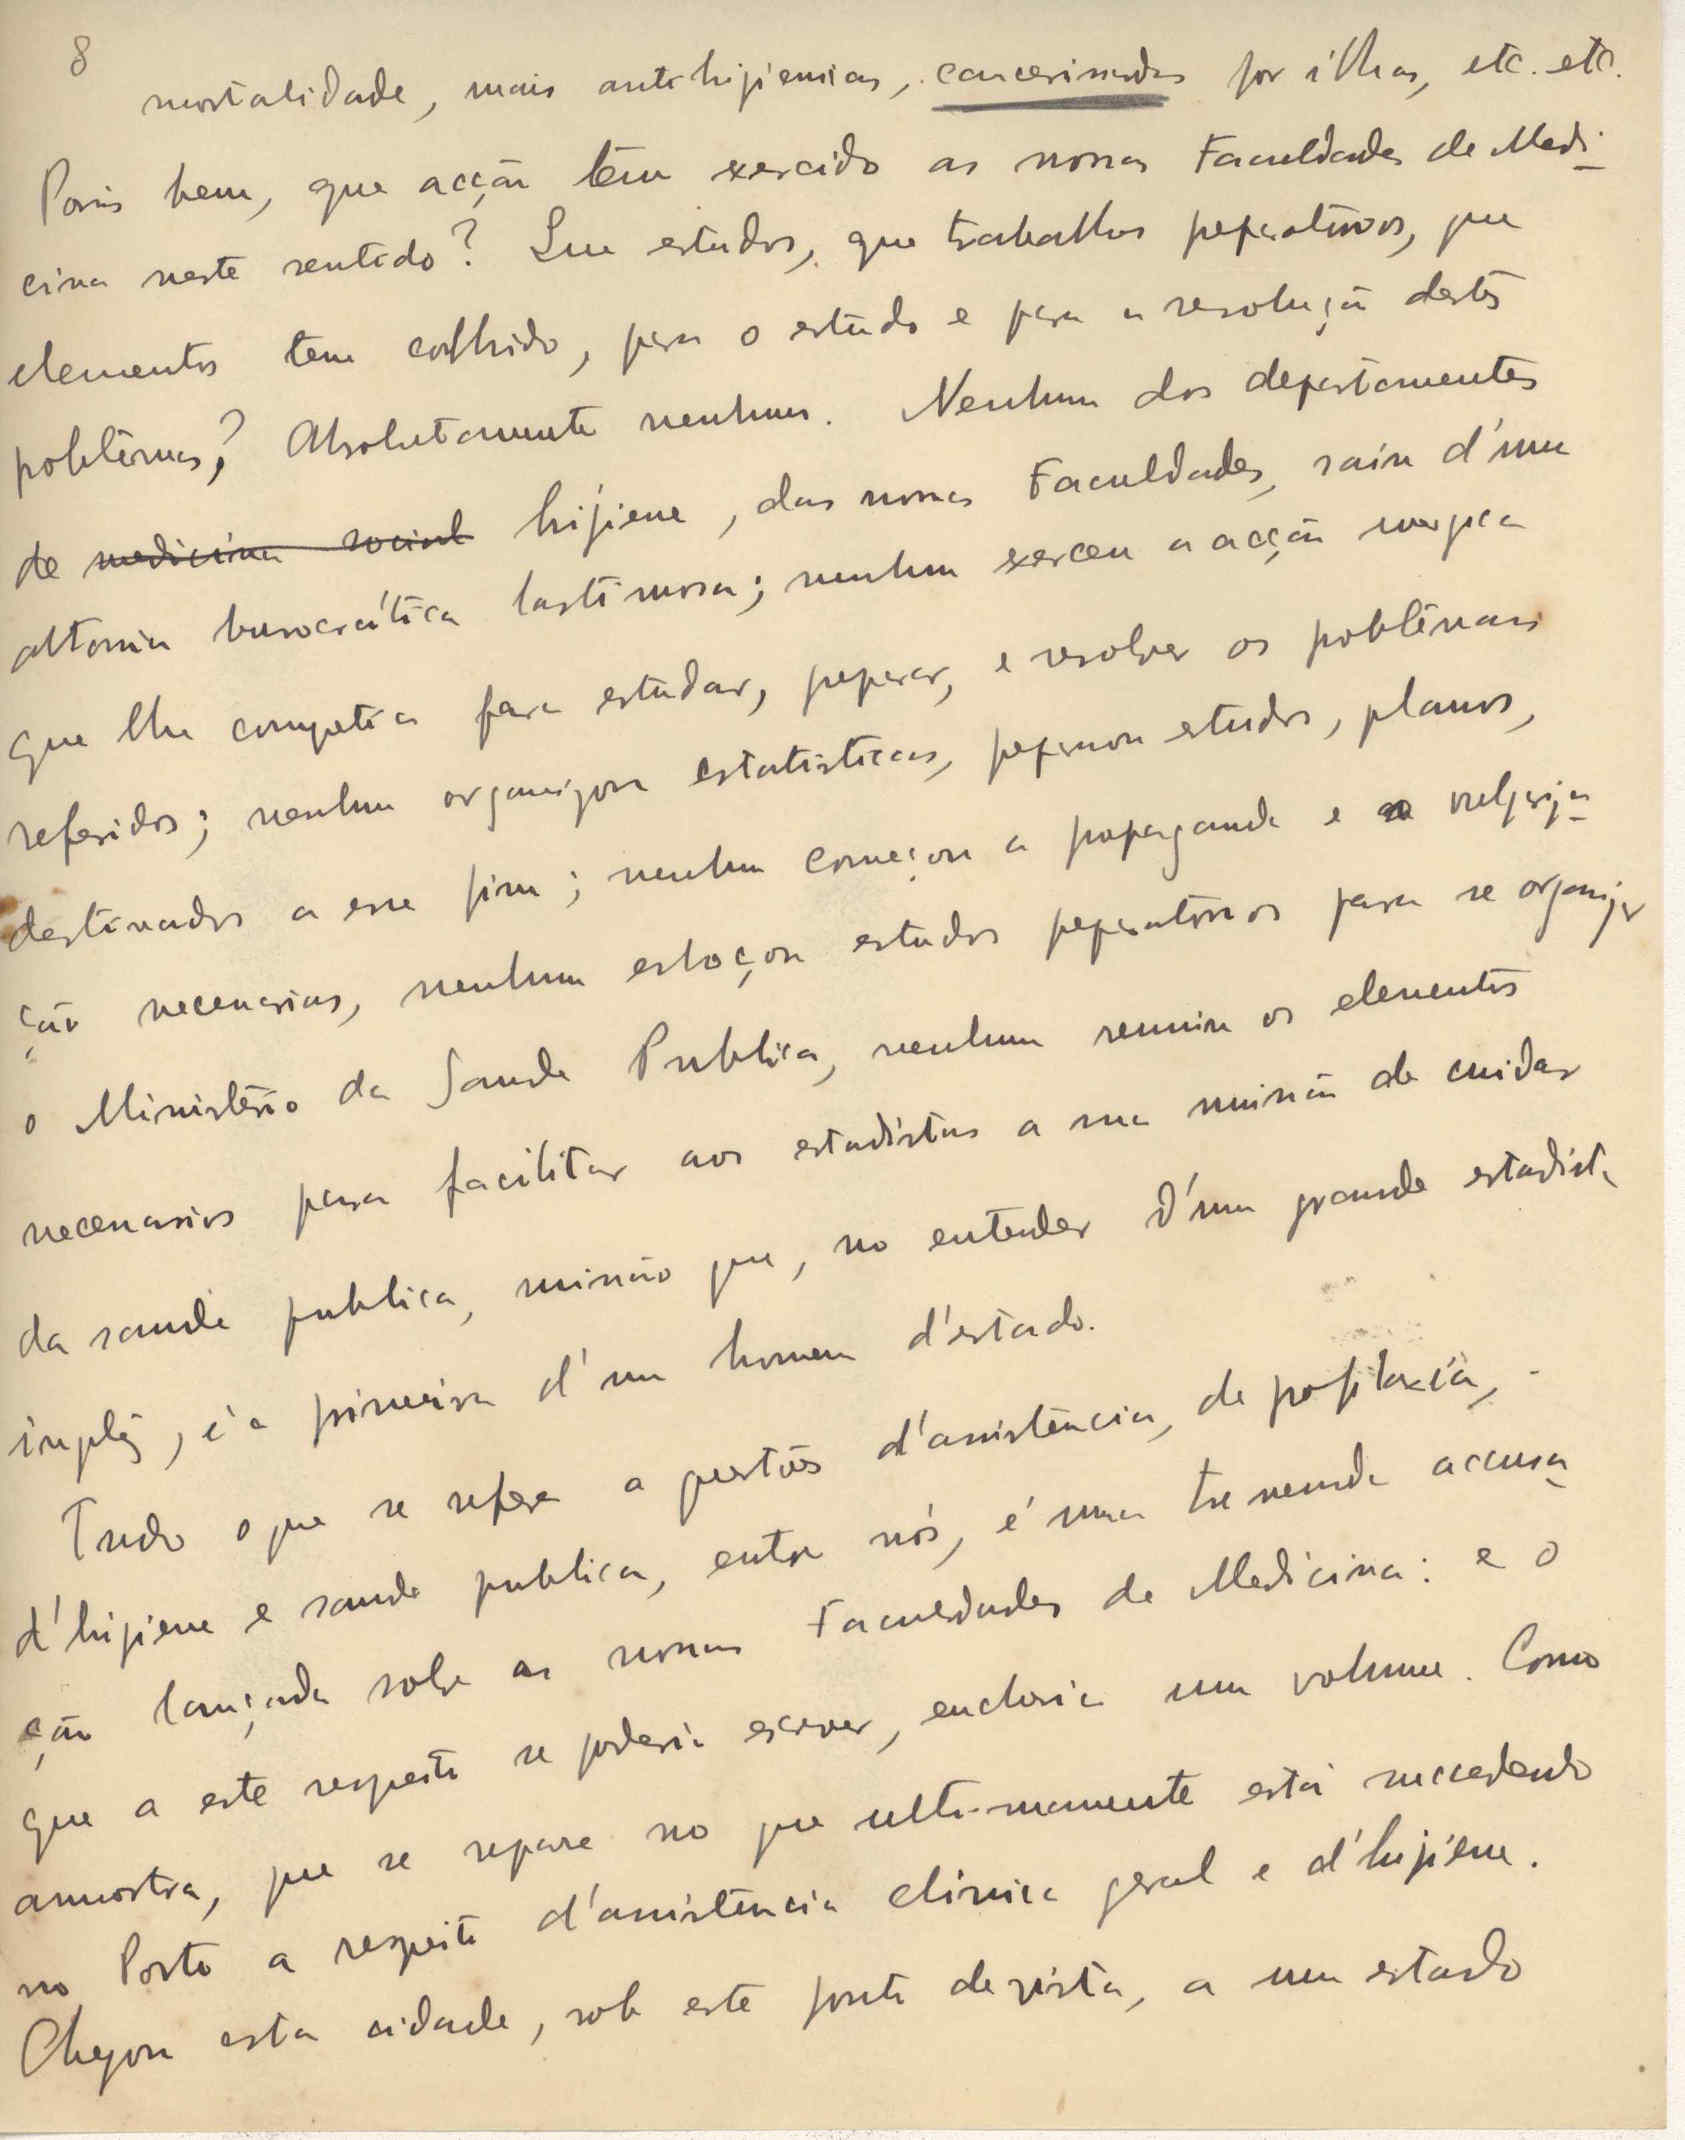 8
mortalidade, mais antihigienicas, cancerisadas por ilhas, etc. etc.
Pois bem, que acção têm exercido as nossas Faculdades de Medi-
cina neste sentido? Que estudos, que trabalhos preparativos, que
elementos tem colhido, para o estudo e para a resolução destes
problêmas? Absolutamente nenhuns. Nenhum dos departamentos
de medicina social higiene, das nossas Faculdades, saiu d'uma
burocrática lastimosa; nenhum exerceu a acção
que lhe competia para estudar, preparar, e resolver os problêmas
referidos; nenhum organizou estatisticas, preparou estudos, planos,
destinados a esse fim; nenhum começou a propaganda e a vulgariza-
ção necessarias, nenhum esboçou estudos preparatorios para se organizar
o Ministério da Saude Publica, nenhum reuniu os elementos
necessarios para facilitar aos estadistas a sua missão de cuidar
da saude publica, missão que, no entender d'um grande estadista
inglês, é a primeira d'um homem d'estado.
Tudo o que se refere a questões d'assistência, de profilaxía,
d'higiene e saude publica, entre nós, é uma tremenda accusa
ção lançada sobre as nossas Faculdades de Medicina: e o
que a este respeito se poderia escrever, encheria um volume. Como
amostra, que se repare no que ultimamente está succedendo
no Porto a respeito d'assistência clinica geral e d'higiene.
Chegou esta cidade, sob este ponto de vista, a um estado